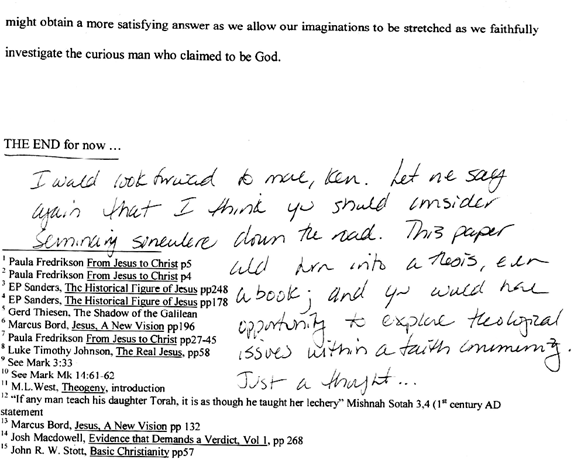 might obtain a more satisfying answer as we allow our imaginations to be stretched as we faithfully
investigate the curious man who claimed to be God.
THE END for now ...
I would look forward to more, Ken. Let me say
again that I think you should consider
Seminary somewhere down the road. This paper
could turn into a thesis, even
a book; and you would have
opportunity to explore theological
issues within a faith community.
Just a thought...
1 Paula Fredrikson From Jesus to Christ p5
2 Paula Fredrikson From Jesus to Christ p4
3 EP Sanders, The Historical Figure of Jesus pp248
4 EP Sanders, The Historical Figure of Jesus pp178
5 Gerd Thiesen, The Shadow of the Galilean
6 Marcus Bord, Jesus, A New Vision pp196
7 Paula Fredrikson From Jesus to Christ pp27-45
8 Luke Timothy Johnson, The Real Jesus, pp58
9 See Mark 3:33
10 See Mark Mk 14:61-62
11 M.L.West, Theogeny, introduction
12 “If any man teach his daughter Torah, it is as though he taught her lechery” Mishnah Sotah 3,4 (1st century AD
statement
13 Marcus Bord, Jesus, A New Vision pp 132
14 Josh Macdowell, Evidence that Demands a Verdict, Vol 1, pp 268
15 John R. W. Stott, Basic Christianity pp57